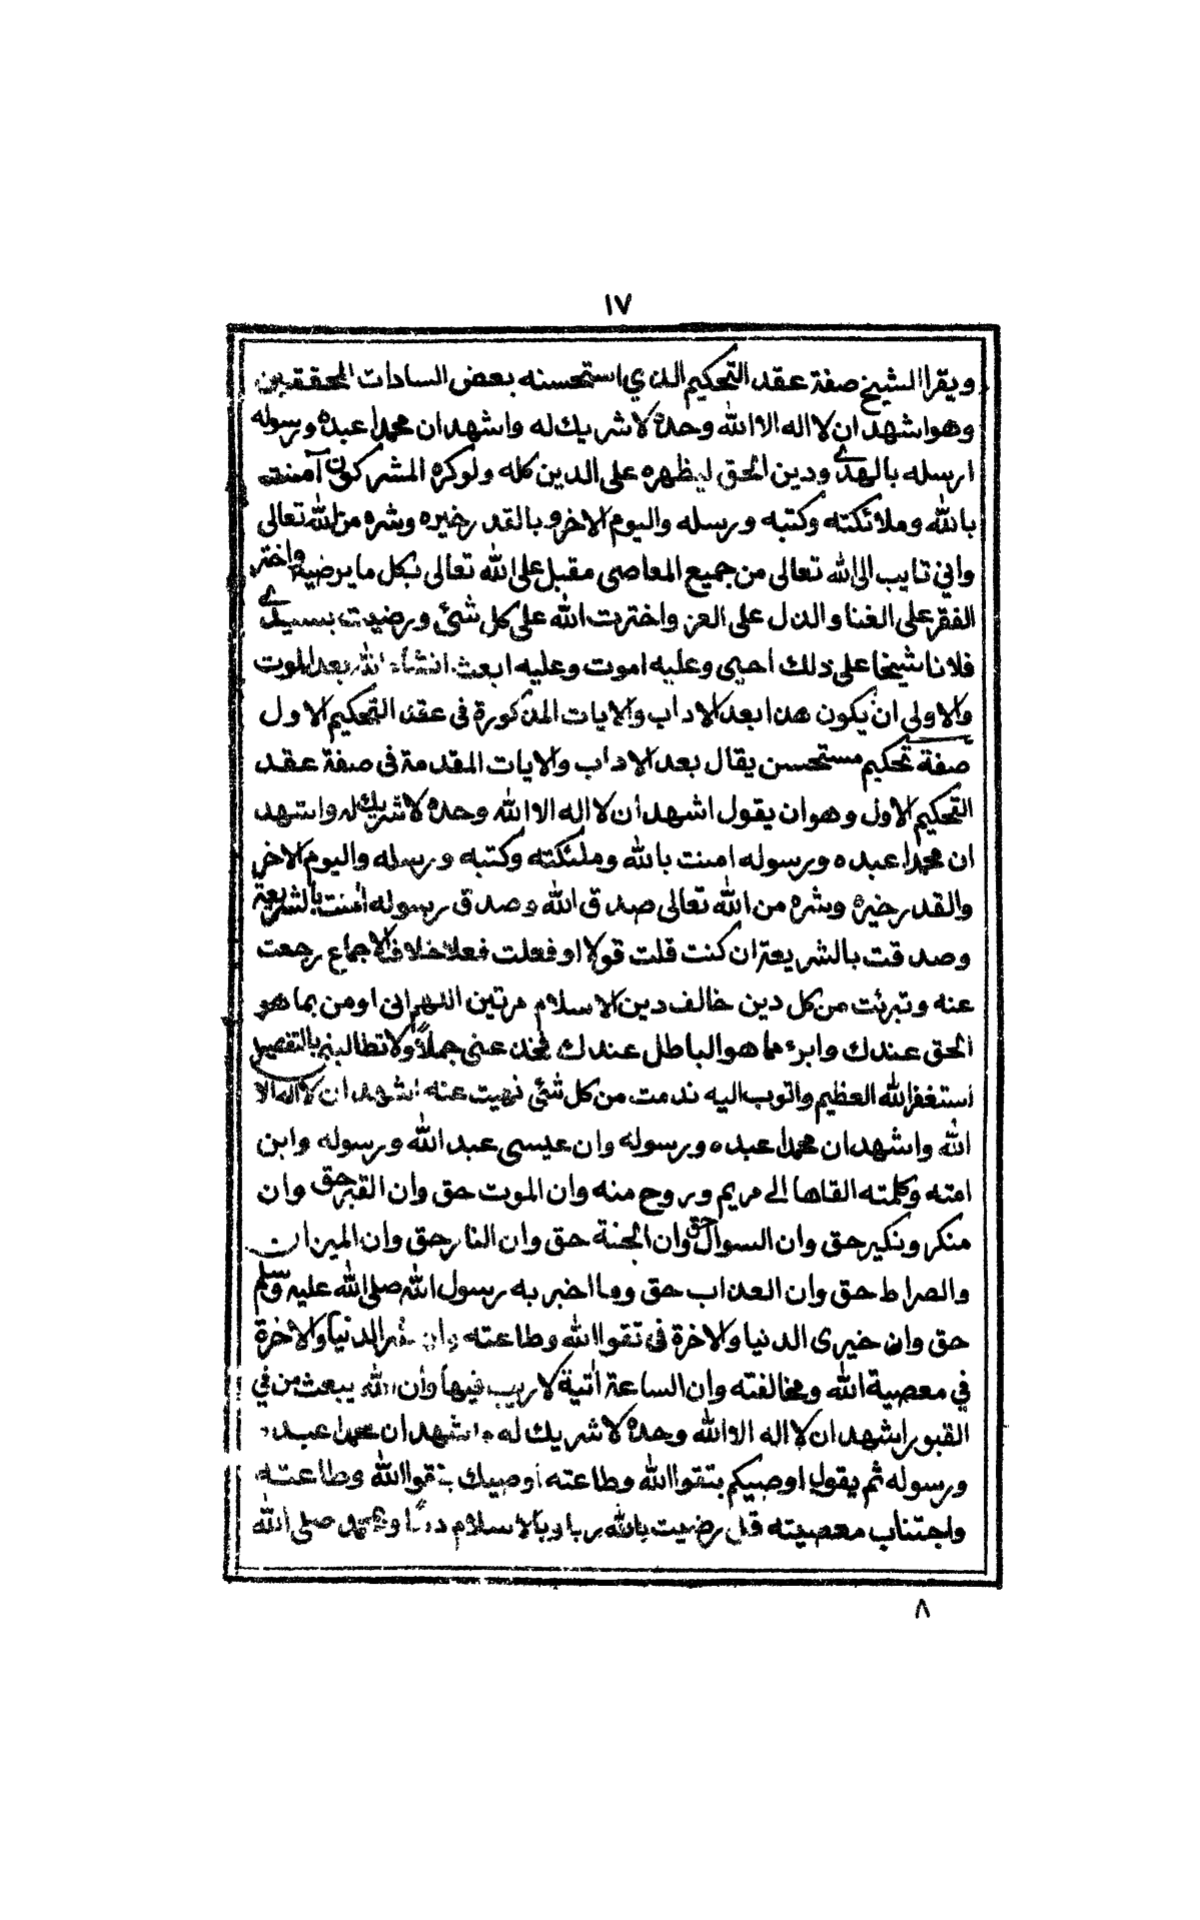 ١٧
ويقرا الشيخ صفة عقد التحكيم الذي استحسنه بعض السادات المحققين
وهو اشهد ان لا اله الا الله وحدة لا شريك له واشهد ان محمدا عبده ورسوله
ارسله بالهدے ودين الحق ليظهره على الدين كله ولوكره المشركون آمنت
بالله وملائكته وكتبه ورسله واليوم الاخر وبالقدر خيره وشره من الله تعالى
واني تايب الى الله تعالى من جميع المعاصى مقبل على الله تعالى بكل ما يرضيه واختر
الفقر على الغنا والذل على العز واخترت الله على كل شئ ورضيت بسيدے
فلانا شيخا على ذلك احيى وعليه اموت وعليه ابعث انشاء الله بعد الموت
والاولى ان يكون هذا بعد الاداب والايات المذكورة فى عقد التحكيم الاول
صفة تحكيم مستحسن يقال بعد الاداب والايات المقدمة فى صفة عقد
التحكيم الاول وهو ان يقول اشهد أن لا اله الا الله وحده لا شريك له واشهد
ان محمدا عبده ورسوله امنت بالله وملئكته وكتبه ورسله واليوم الاخر
والقدر خيرة وشره من الله تعالى صدق الله وصدق رسوله امنت بالشريعة
وصدقت بالشريعة ان كنت قلت قولا او فعلت فعلا خلاف الاجماع رجعت
عنه وتبرئت من كل دين خالف دين الاسلام مرتين اللهم انى اومن بما هو
الحق عندك وابرء مما هو الباطل عندك فخذ عنى جملاً ولا تطالبنى بالتفصيل
استغفر الله العظيم واتوب اليه ندمت من كل شئ نهيت عنه اشهد ان لا اله الا
الله واشهد ان محمدا عبده ورسوله وان عيسى عبد الله ورسوله وابن
امته وكلمته القاها الے مريم وروح منه وان الموت حق وان القبر حق وان
منكر ونكير حق وان السوال حق وان الجنة حق وان النار حق وان الميزان
والصراط حق وان العذاب حق وما اخبر به رسول الله صلى الله عليه وسلم
حق وان خيرى الدنيا والاخرة فى تقوا الله وطاعته وان شر الدنيا والاخرة
في معصية الله ومخالفته وان الساعة اتية لا ريب فيها وأن الله يبعث من في
القبور اشهد ان لا اله الا الله وحدة لا شريك له واشهد ان محمدا عبده
ورسوله ثم يقول اوصيكم بتقوا الله وطاعته اوصيك بتقوا الله وطاعته
واجتناب معصيته قل رضيت بالله ربا وبالاسلام دينا وبمحمد صلى الله
٨